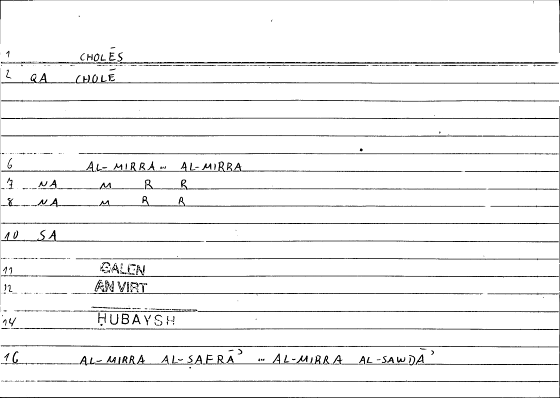 1 CHOLĒS
2 QA CHOLĒ
6 AL-MIRRA .. AL-MIRRA
7 NA M R R
8 NA M R R
10 SA
11 GALEN
12 AN VIRT
14 ḤUBAYSH
16 AL-MIRRA AL-ṢAFRĀʾ .. AL-MIRRA AL-SAWDĀʾ